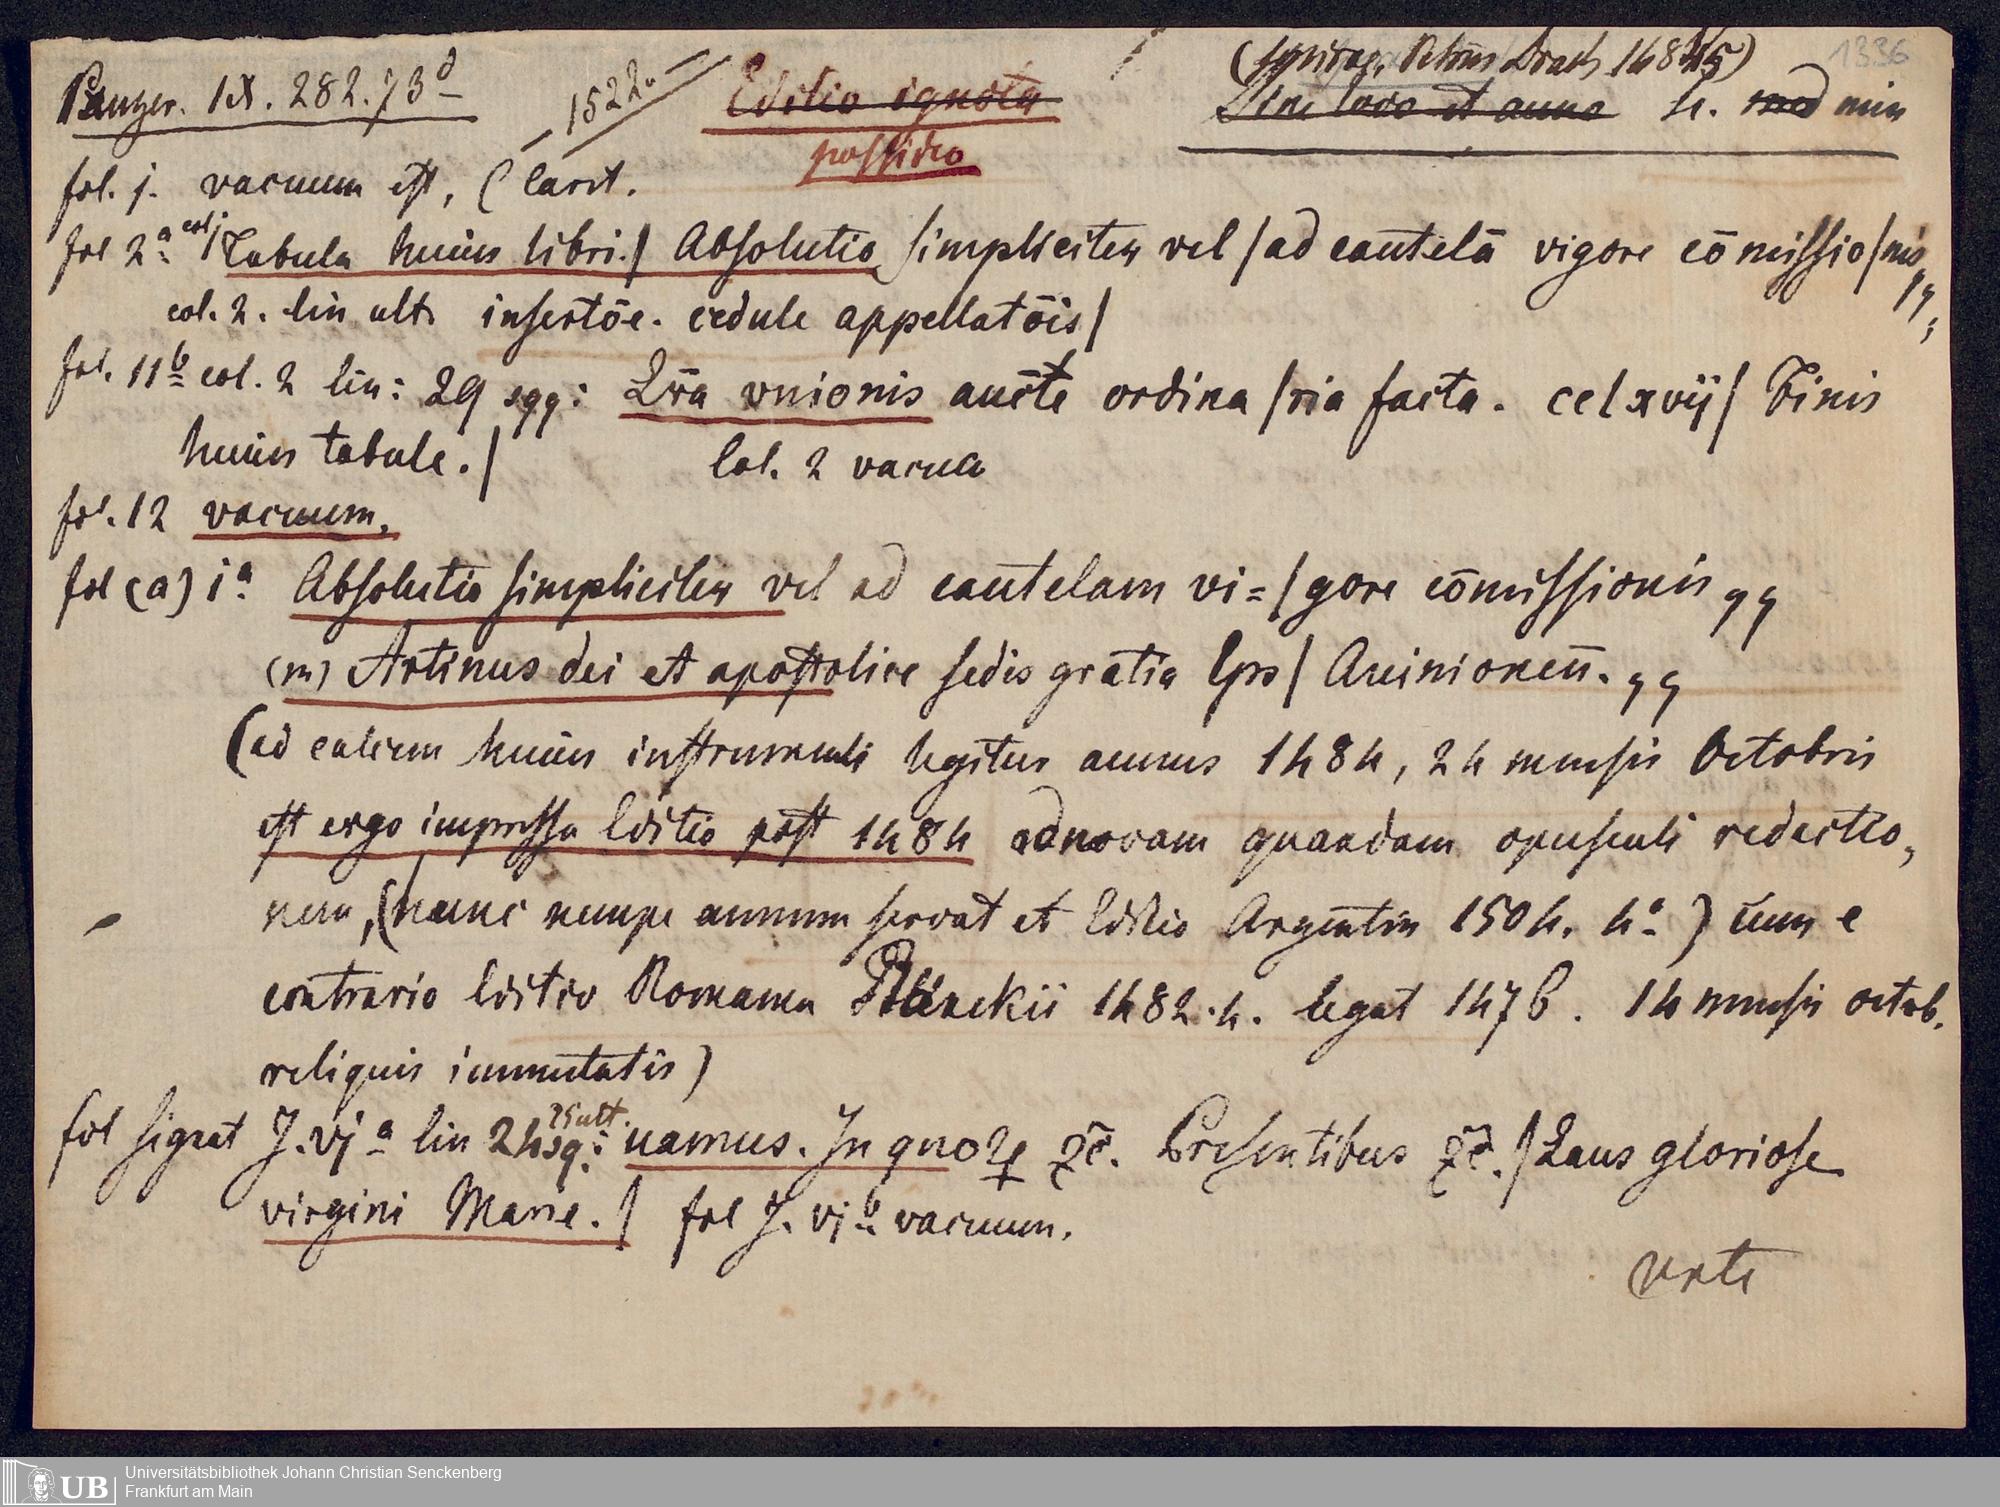 Panzer. IX. 282. 73d
1522.
Editio ignota
possideo
(Spirae, Petrus Drach 1485)
1336
Sine loco et anno 4. med min
fol. j. vacuum est, (caret.
fol 2a col j Tabula huius libri./ Absolutio simpliciter vel / ad cautelā vigore cōmissio/nis qq;
col. 2. lin ult. insertōe. cedule appellatōis/
fol. 11b col. 2 lin: 29 sqq: Lr̄a vnionis aucte ordina /ria facta. cclxvij/ Finis
huius tabule./ Col. 2 vacua
fol. 12 vacuum.
fol (a) ia Absolutio simpliciter vel ad cautelam vi=/gore cōmissionis qq
(m) Artinus dei et apostolice sedis gratia Eps/ Auinioneñ. qq
(ad calcem huius instrumenti legitur annus 1484, 24 mensis Octobris
est ergo impressa Editio post 1484 ad novam quandam opusculi redactio,
nem, (hunc nempe annum servat et Editio Argentin 1504. 4o) cum e
contrario Editio Romana Planckii 1482. 4. legat 1476. 14 mensis octob.
reliquis immutatis)
fol signat J. vj a lin 24 sq: 25 ult. uamus. In quoꝝ ꝛc̄. Presentibus ꝛc̄./ Laus gloriose
virgini Marie./ fol J. vj b vacuum.
verte
UB
Universitätsbibliothek Johann Christian Senckenberg
Frankfurt am Main